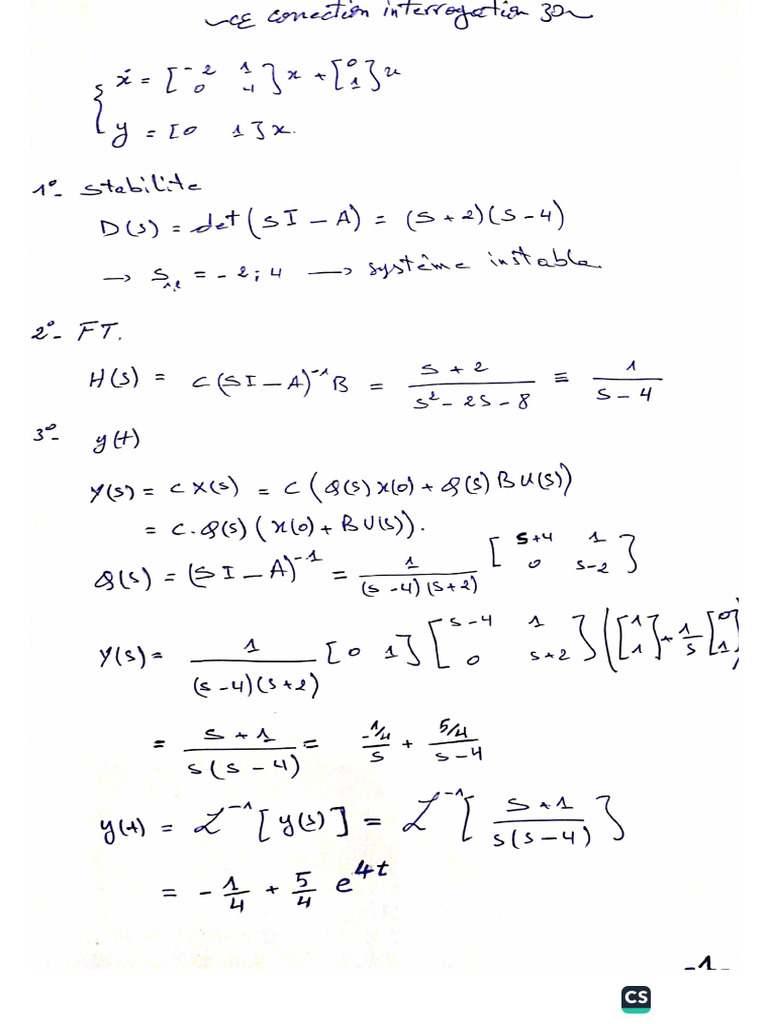 CE correction interrogation 30
{ ẋ = [-2 1; 0 4] x + [0; 1] u
y = [0 1] x.
1°- stabilite
D(s) = det(sI - A) = (s+2)(s-4)
→ s₁,₂ = -2; 4 → système instable.
2°- FT.
H(s) = C(sI - A)⁻¹B = (s + 2)/(s² - 2s - 8) ≡ 1/(s - 4)
3°- y(t)
Y(s) = C X(s) = C (Q(s) x(0) + Q(s) B U(s))
= C.Q(s) (x(0) + B U(s)).
Q(s) = (SI - A)⁻¹ = 1/((s-4)(s+2)) [s+4 1; 0 s-2]
Y(s) = 1/((s-4)(s+2)) [0 1] [s-4 1; 0 s+2] ([1; 1] + 1/s [0; 1]
= (s+1)/(s(s-4)) = (-1/4)/s + (5/4)/(s-4)
y(t) = ℒ⁻¹[y(s)] = ℒ⁻¹[(s+1)/(s(s-4))]
= -1/4 + 5/4 e^{4t}
-1-
CS